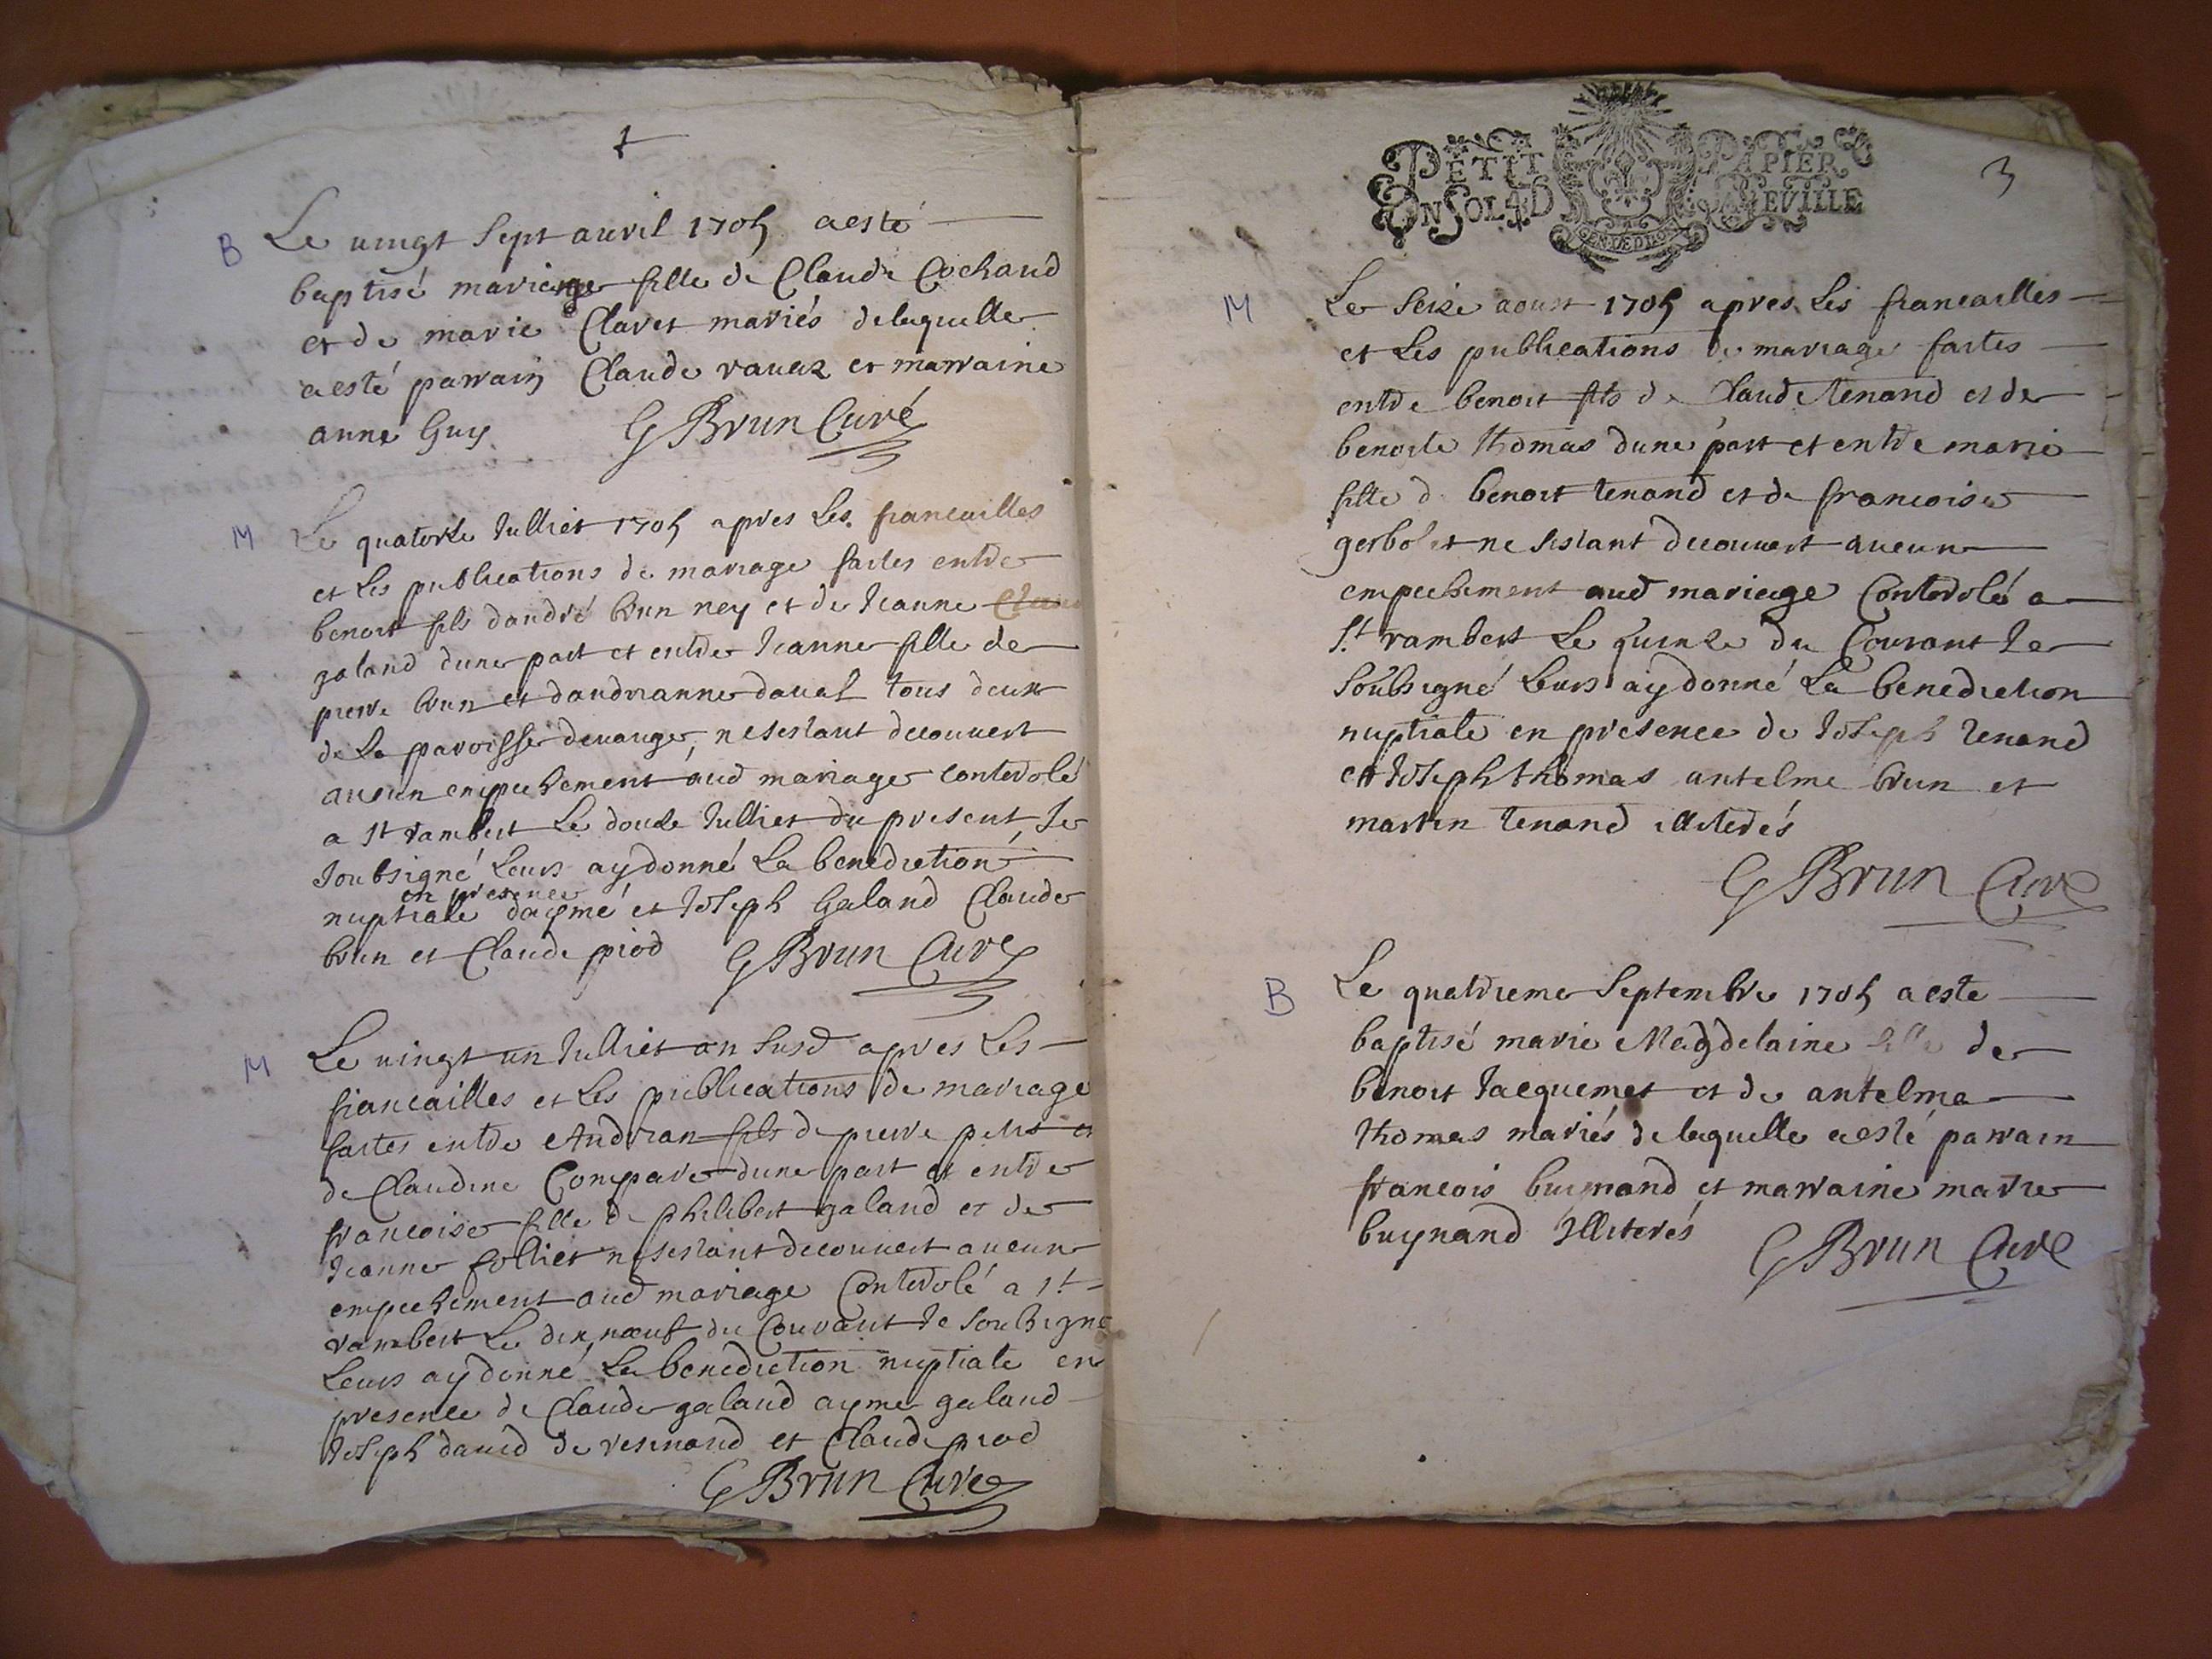 B Le vingt Sept auvril 1705 a esté
baptisé mariene fille de Claude Cochand
et de marie Claret mariés de laquelle
a esté parrain Claude ravaz et marraine
anne Guy G Brun Curé
M Le quatorze Julliet 1705 apres Les fiancailles
et Les publications de mariage faites entre
benoit fils dandré brun ney et de Jeanne
galand dune part et entre Jeanne fille de
pierre brun et dandrianne daval tous deux
de La paroisse denange, ne sestant decouvert
aucun empechement aud mariage controlé
a St rambert Le douze Julliet du present, Je
soubsigné Leurs ay donné La benediction
en presence
nuptiale daymé et Joseph Galand Claude
brun et Claude piod G Brun Curé
M Le vingt un Julliet an susd apres Les
fiancailles et Les publications de mariage
faites entre Andrian fils de pierre petit et
de Claudine Compare dune part et entre
francoise fille de philibert galand et de
Jeanne folliet ne sestant decouvert aucun
empechement aud mariage Controlé a St
rambert Le dix nœuf du Courant Je soubsigné
Leurs ay donné La benediction nuptiale en
presence de Claude galand aymé galand
Joseph david de resinand et Claude piod
G Brun Curé
PETIT PAPIER
UN SOL 4 D LA FEUILLE
3
M Le seize aoust 1705 apres Les fiancailles
et Les publications de mariage faites
entre benoit fils de Claude tenand et de
benoite thomas dune part et entre marie
fille de benoit tenand et de francoise
gerbolet ne sestant decouvert aucun
empechement aud mariage Controlé a
St rambert Le quinze du Courant Je
soubsigné Leurs ay donné La benediction
nuptiale en presence de Joseph tenand
et Joseph thomas antelme brun et
martin tenand illiterés
G Brun Curé
B Le quatrieme Septembre 1705 a este
baptisé marie Magdelaine fille de
benoit Jacquemet et de antelma
thomas mariés de laquelle a esté parrain
francois buynand et marraine marie
buynand Illiterés G Brun Curé